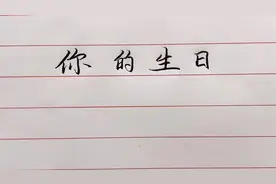 你的生日